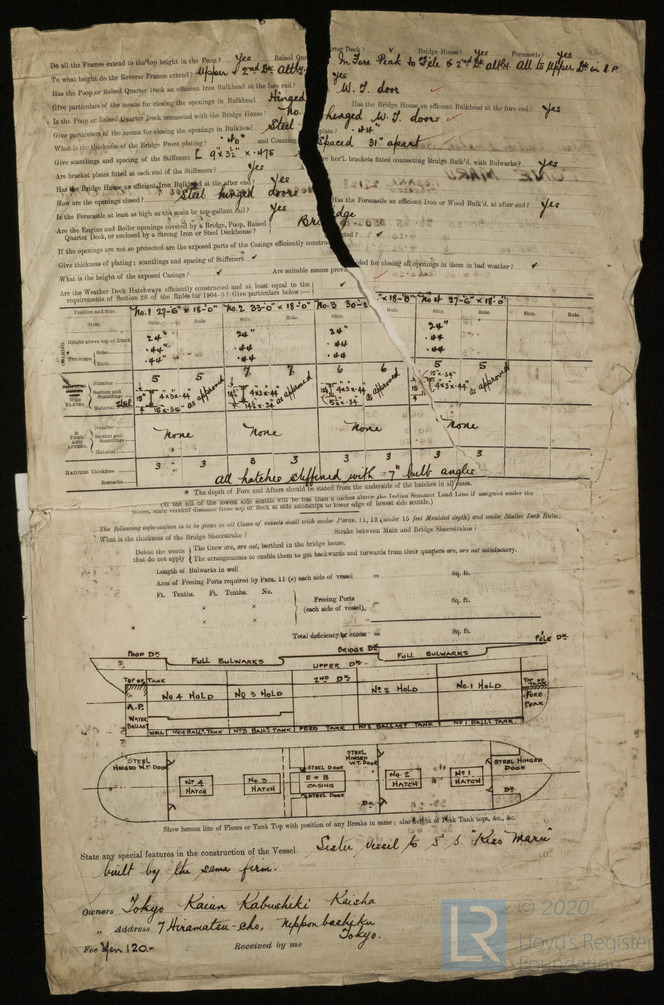 Do all the Frames extend to the top height in the Poop? Yes Raised Quarter Deck? Bridge House? Yes Forecastle? Yes
To what height do the Reverse Frames extend? Upper & 2nd Dk altly. In Fore Peak to Fcle & 2nd Dk altly. All to Upper Dk in A.P.
Has the Poop or Raised Quarter Deck an efficient Iron Bulkhead at the fore end? Yes
Give particulars of the means for closing the openings in Bulkhead Hinged W.T. door
Is the Poop or Raised Quarter Deck connected with the Bridge House? No. Has the Bridge House an efficient Bulkhead at the fore end? Yes
Give particulars of the means for closing the openings in Bulkhead Steel hinged W.T. doors
What is the thickness of the Bridge Front plating? .40" and Coaming plate? .44"
Give scantlings and spacing of the Stiffeners [ 9" x 3½" x .475 Spaced 31" apart
Are bracket plates fitted at each end of the Stiffeners? Yes Are hor'l brackets fitted connecting Bridge Bulk'd. with Bulwarks? Yes
Has the Bridge House an efficient Iron Bulkhead at the after end? Yes
How are the openings closed? Steel hinged doors
Is the Forecastle at least as high as the main or top-gallant rail? Yes Has the Forecastle an efficient Iron or Wood Bulk'd. at after end? Yes
Are the Engine and Boiler openings covered by a Bridge, Poop, Raised Quarter Deck, or enclosed by a Strong Iron or Steel Deckhouse? Bridge
If the openings are not so protected are the exposed parts of the Casings efficiently constructed?
Give thickness of plating; scantlings and spacing of Stiffeners
What is the height of the exposed Casings? Are suitable means provided for closing all openings in them in bad weather?
Are the Weather Deck Hatchways efficiently constructed and at least equal to the
requirements of Section 28 of the Rules for 1904-5? Give particulars below:—
Position and Size. No. 1 27-6" x 18-0" No. 2 33-0" x 18-0" No. 3 30-3" x 18-0" No. 4 27-6" x 18-0"
Item. Ship. Rule. Ship. Rule. Ship. Rule. Ship. Rule.
Height above top of DECK 24" 24" 24" 24"
Thickness Sides .44 .44 .44 .44
Ends .44" .44" .44" .44"
WEB PLATES Number 5 5 7 7 6 6 5 5
Section and Scantlings 4x3x.44" as approved 4x3x.44" as approved 4x3x.44" as approved 4x3x.44" as approved
Material Steel
FORE AND AFTERS Number
Section and Scantlings None None None None
Material
HATCHES Thickness 3 3 3 3 3 3 3 3
Remarks all hatches stiffened with 7" bulb angles
* The depth of Fore and Afters should be stated from the underside of the hatches in all cases.
(If the sill of the lowest side scuttle will be less than 6 inches above the Indian Summer Load Line if assigned under the
tables, state vertical distance from top of deck at side amidships to lower edge of lowest side scuttle.)
The following information is to be given in all Cases of vessels dealt with under Paras. 11, 12 (under 15 feet Moulded depth) and under Shelter Deck Rules.
What is the thickness of the Bridge Sheerstrake? Strake between Main and Bridge Sheerstrakes?
Delete the words that do not apply { The Crew are, are not, berthed in the bridge house.
The arrangements to enable them to get backwards and forwards from their quarters are, are not satisfactory.
Length of Bulwarks in well
Area of Freeing Ports required by Para. 11 (e) each side of vessel = Sq. ft.
Ft. Tenths. Ft. Tenths. No.
x x } Freeing Ports (each side of vessel). = Sq. ft.
x x
Total deficiency or excess = Sq. ft.
POOP DK. FULL BULWARKS BRIDGE DK. FULL BULWARKS FCLE DK.
UPPER DK.
TOP OF TANK 2ND DK. TOP OF TANK
No 4 HOLD No 3 HOLD No 2 HOLD No. 1 HOLD FORE PEAK
A.P. WATER BALLAST
WELL No 4 BALL'S. TANK No 3 BALL'S. TANK FEED TANK No 2 BALLAST TANK No 1 BALL'S TANK
STEEL HINGED W.T. DOOR STEEL DOOR STEEL HINGED W.T. DOOR STEEL HINGED DOOR
No. 4 HATCH No. 3 HATCH E & B CASING No. 2 HATCH No. 1 HATCH
STEEL DOOR DO. DO.
Show hereon line of Floors or Tank Top with position of any Breaks in same; also height of Peak Tank tops, &c., &c.
State any special features in the construction of the Vessel Sister vessel to S.S. "Kiso Maru"
built by the same firm.
Owners Tokyo Kaiun Kabushiki Kaisha
" Address 7 Hiramatsu-cho, Nipponbashiku
Tokyo.
Fee Yen 120.- Received by me
LR © 2020
Lloyd's Register
Foundation